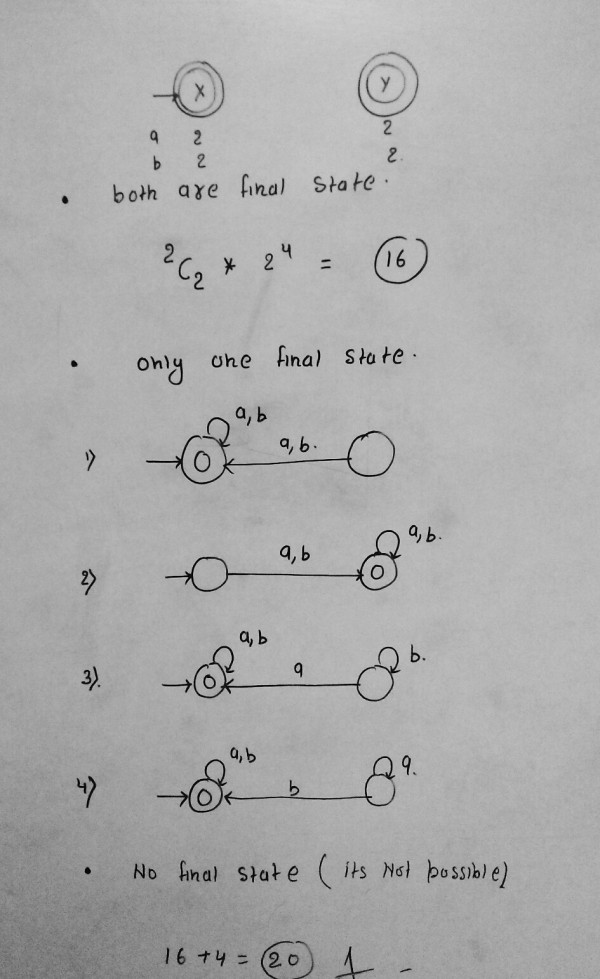 X Y
a 2 2
b 2 2.
• both are final state.
²C₂ * 2⁴ = 16
• only one final state.
a, b
1) a, b.
a, b.
2) a, b
a, b b.
3). a
a, b a.
4) b
• No final state ( its Not possible)
16 + 4 = 20